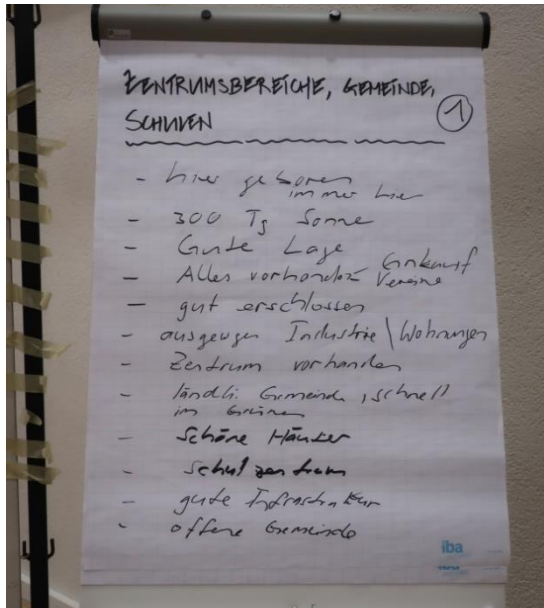 ZENTRUMSBEREICHE, GEMEINDE,
SCHULEN
1
- hier geboren
immer hier
- 300 Tg Sonne
- Gute Lage
- Alles vorhanden Einkauf
Vereine
- gut erschlossen
- ausgewogen Industrie \ Wohnungen
- Zentrum vorhanden
- ländli. Gemeinde, schnell
im Grünen
- schöne Häuser
- schulzentrum
- gute Infrastruktur
- offene Gemeinde
iba